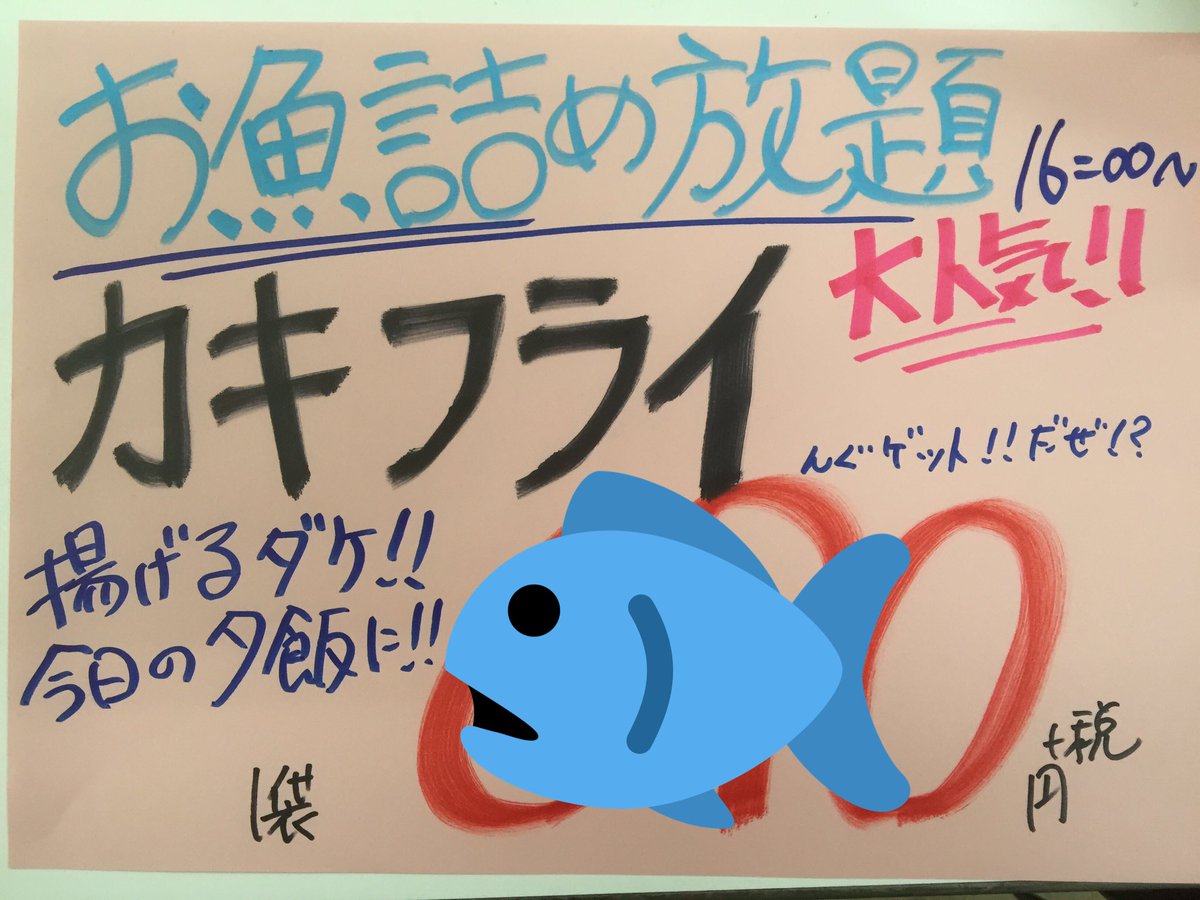 お魚詰め放題
16:00〜
カキフライ
大人気!!
んぐゲット!!だぜ!?
揚げるダケ!!
今日の夕飯に!!
1袋
円+税